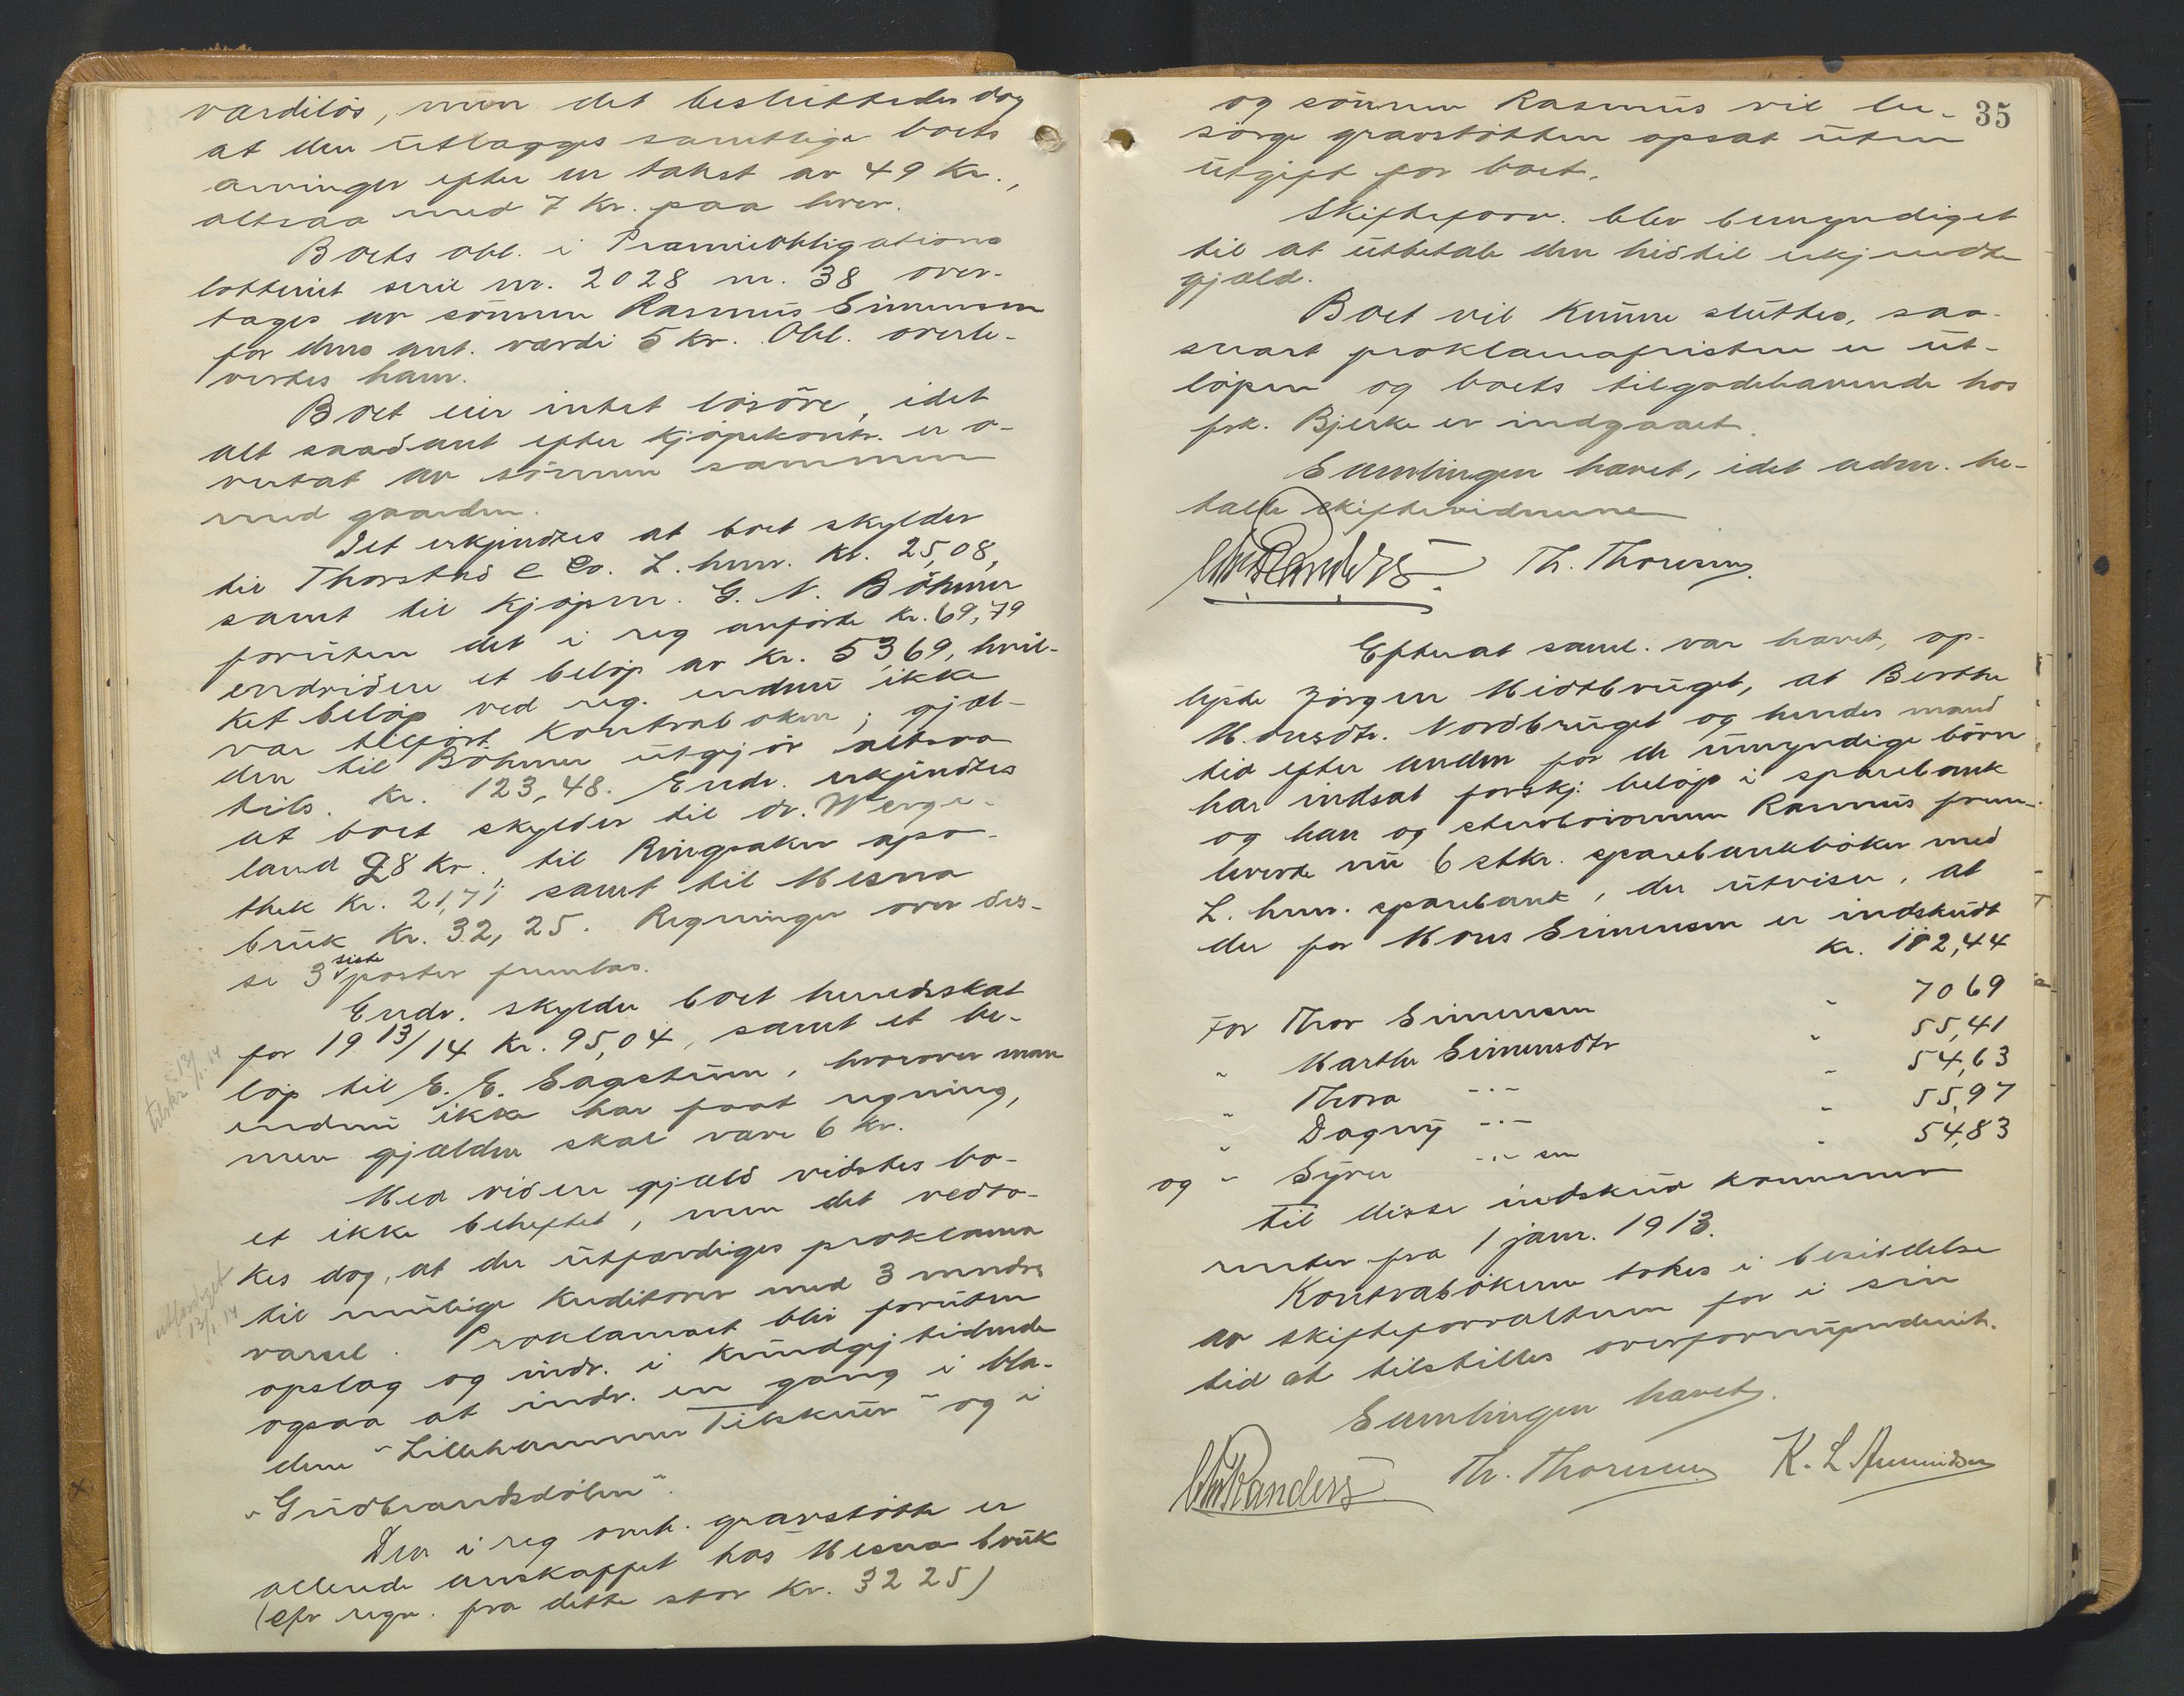 værdiløs, men det besluttedes dog
at den utlægges samtlige boets
arvinger efter en takst av 49 kr.,
altsaa med 7 kr. paa hver.
Boets obl. i Præmieobligations
lotteriet serie nr. 2028 nr. 38 over-
tages av sønnen Rasmus Simensen
for dens ant. værdi 5 kr. Obl. overle-
vertes ham.
Boet eier intet løsøre, idet
alt saadant efter kjøpekontr. er o-
vertat av sønnen sammen
med gaarden.
Det erkjendtes at boet skylder
til Thorstad & Co. L.hmr. kr. 25,08,
samt til kjøpm. G. N. Böhmer
foruten det i reg anførte kr. 69,79
endvidere et beløp av kr. 53,69, hvil-
ket beløp ved reg. endnu ikke
var tilført kontraboken; gjæl-
den til Böhmer utgjør altsaa
tils. kr. 123,48. Endv. erkjendtes
at boet skylder til dr. Werge-
land 28 kr., til Ringsaker apo-
thek kr. 21,71 samt til Mesna
bruk kr. 32,25. Regninger over dis-
se 3 siste poster fremlas.
Endv. skylder boet herredsskat
for 1913/14 kr. 95,04, samt et be-
løp til E. E. Sagstuen, hvorover man
endnu ikke har faat regning,
men gjælden skal være 6 kr.
Med videre gjæld vidstes bo-
et ikke beheftet, men det vedto-
kes dog, at der utfærdiges proklama
til mulige kreditorer med 3 mndrs
varsel. Proklamaet blir foruten
opslag og indr. i Kundgj tidende
ogsaa at indr. en gang i bla-
dene "Lillehammer Tilskuer" og i
"Gudbrandsdølen".
Den i reg omh. gravstøtte er
allerede anskaffet hos Mesna bruk
(cfr regn. fra dette stor kr. 32 25)
utfærdiget
13/1.14
35
og sønnen Rasmus vil be-
sørge gravstøtten opsat uten
utgift for boet.
Skifteforv. blev bemyndiget
til at utbetale den hidtil erkjendte
gjæld.
Boet vil kunne sluttes, saa-
snart proklamafristen er ut-
løpen og boets tilgodehavende hos
frk. Bjerke er indgaaet.
Samlingen hævet, idet adm. be-
talte skiftevidnerne
Chr Randers. Th. Thoresen
Efterat saml. var hævet, op-
lyste Jørgen Midtbruget, at Berthe
M.onsdtr. Nordbruget og hendes mand
tid efter anden for de umyndige børn
har indsat forskj. beløp i sparebank
og han og stervbosønnen Rasmus frem-
leverte nu 6 stkr. sparebankbøker med
L.hmr. sparebank, der utviser, at
der for Mons Simensen er indskudt
kr. 182,44
For Thor Simensen " 70 69
" Marthe Simensdtr " 55,41
" Thora -"- " 54,63
" Dagny -"- " 55,97
og " Syver -"- sen " 54,83
Til disse indskud kommer
renter fra 1 janr. 1913.
Kontrabøkerne tokes i besiddelse
av skifteforvalteren for i sin
tid at tilstilles overformynderiet.
Samlingen hævet.
Chr Randers Th. Thoresen K. L. Amundsen